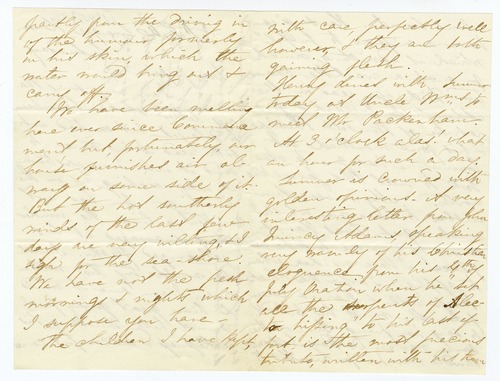 partly from the driving in
of the humor formerly
in his skin, which the
water would bring out &
carry off.
We have been melting
here ever since Commence
ment but, fortunately, our
house furnishes air al
ways on some side of it.
But the hot southerly
winds of the last few
days are very wilting, & I
sigh for the sea-shore.
We have not the fresh
mornings & nights which
I suppose you have -
the children I have kept,
with care, perfectly well
however, & they are both
gaining flesh.
Henry dined with Sumner
today at Uncle Wms to
meet Mr Packenham -
At 3 o'clock alas! what
an hour for such a day.
Sumner is crowned with
golden opinions. A very
interesting letter from John
Quincy Adams speaking
very warmly of his Christian
eloquence, from his 4th of
July Oration when he set
all the serpents of
hissing to his last effort
is the most precious
tribute, written with his own